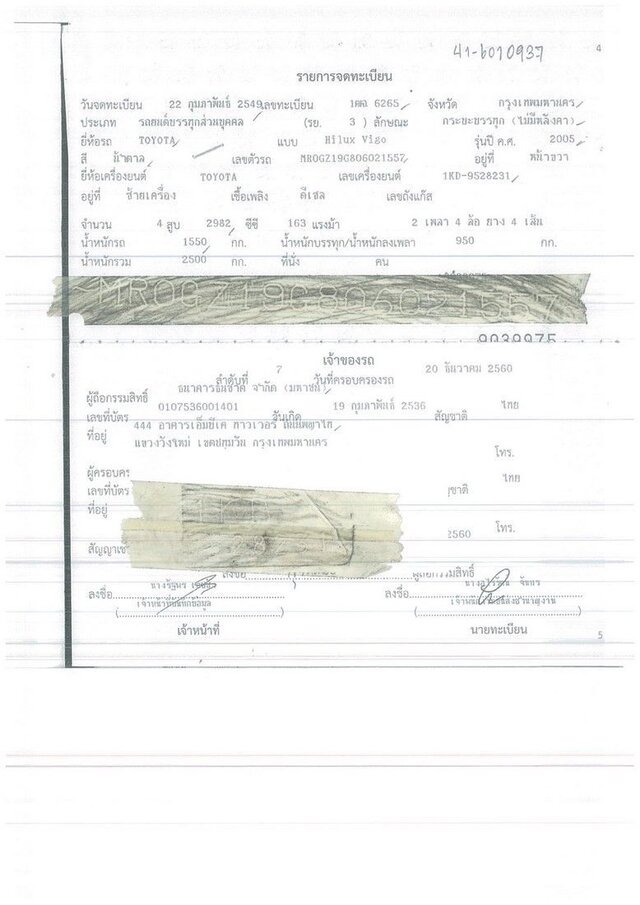 41-6010937
4
รายการจดทะเบียน
วันจดทะเบียน 22 กุมภาพันธ์ 2549 เลขทะเบียน 6265 จังหวัด กรุงเทพมหานคร
ประเภท รถยนต์บรรทุกส่วนบุคคล (รย. 3 ) ลักษณะ กระบะบรรทุก (ไม่มีหลังคา)
ยี่ห้อรถ TOYOTA แบบ Hilux Vigo รุ่นปี ค.ศ. 2005
สี น้ำตาล เลขตัวรถ MR0GZ19G806021557 อยู่ที่ หน้าขวา
ยี่ห้อเครื่องยนต์ TOYOTA เลขเครื่องยนต์ 1KD-9528231
อยู่ที่ ซ้ายเครื่อง เชื้อเพลิง ดีเซล เลขถังแก๊ส
จำนวน 4 สูบ 2982 ซีซี 163 แรงม้า 2 เพลา 4 ล้อ ยาง 4 เส้น
น้ำหนักรถ 1550 กก. น้ำหนักบรรทุก/น้ำหนักลงเพลา 950 กก.
น้ำหนักรวม 2500 กก. ที่นั่ง คน
MR0GZ19G806021557
9039975
เจ้าของรถ
ลำดับที่ 7 วันที่ครอบครองรถ 20 ธันวาคม 2560
ผู้ถือกรรมสิทธิ์ ธนาคารธนชาต จำกัด (มหาชน)
เลขที่บัตร 0107536001401 วันเกิด 19 กุมภาพันธ์ 2536 สัญชาติ ไทย
ที่อยู่ 444 อาคารเอ็มบีเค ทาวเวอร์ ถนนพญาไท
แขวงวังใหม่ เขตปทุมวัน กรุงเทพมหานคร
โทร.
ผู้ครอบคร
เลขที่บัตร ไทย
ที่อยู่
2560 โทร.
สัญญาเช่
ลงชื่อ ผู้ถือกรรมสิทธิ์
ลงชื่อ ลงชื่อ
เจ้าหน้าที่บันทึกข้อมูล
เจ้าหน้าที่ นายทะเบียน
5